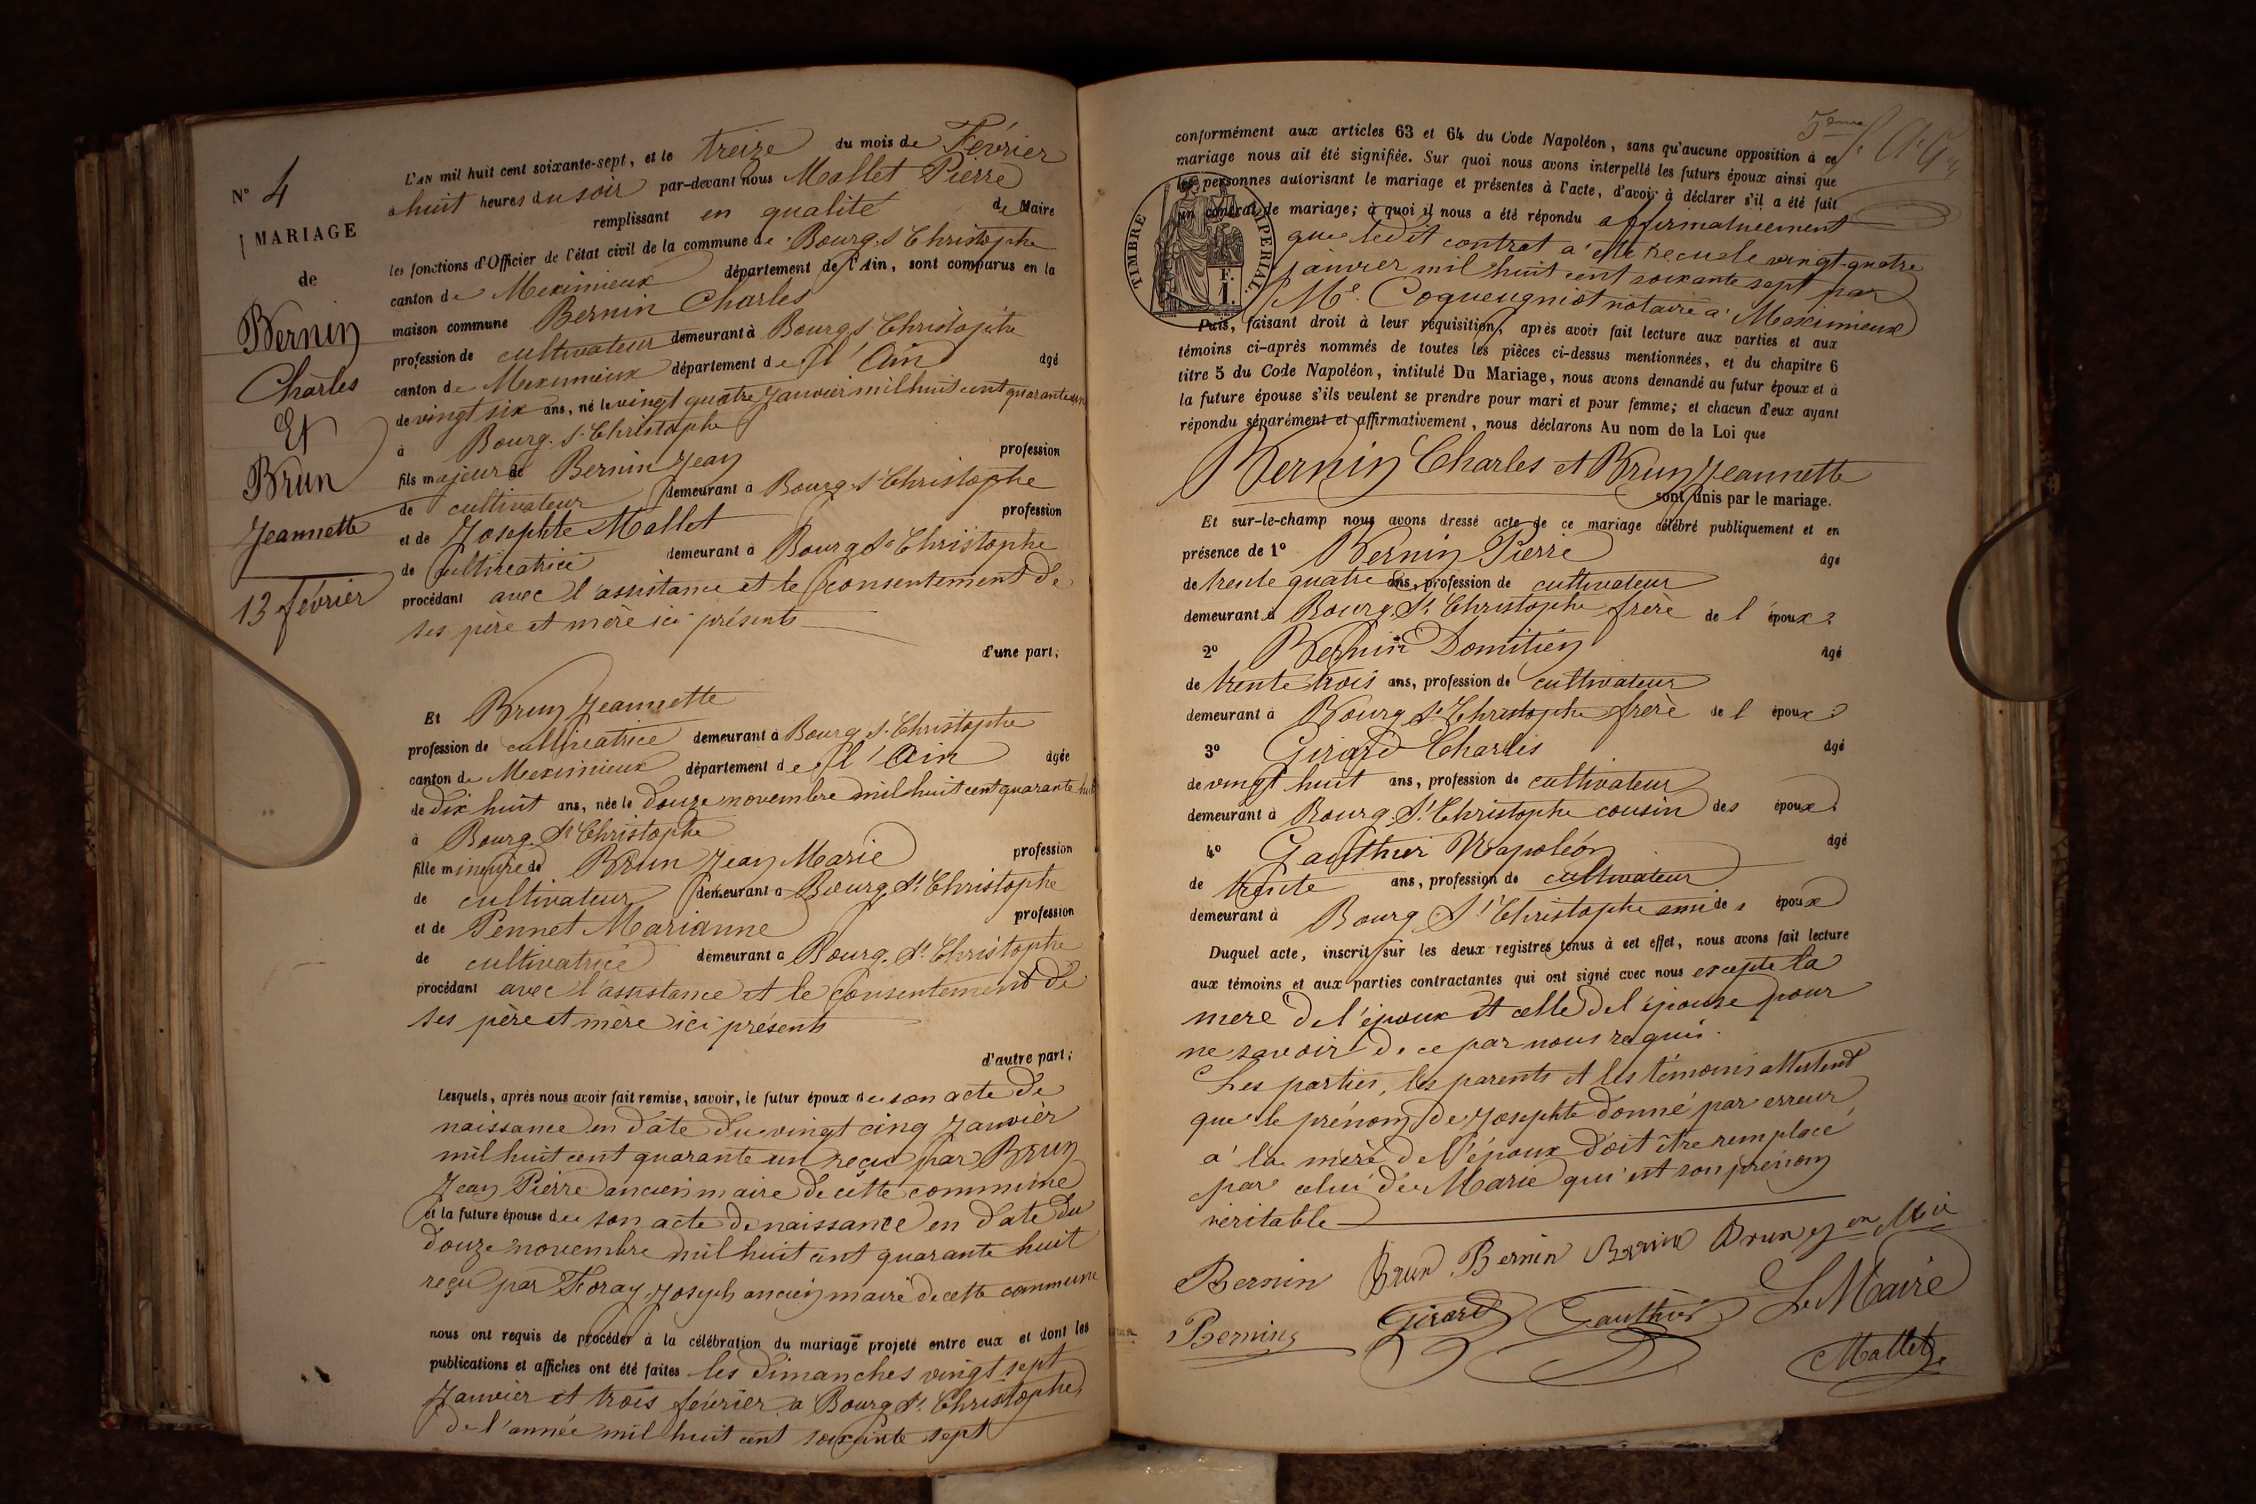 N° 4
MARIAGE
de
Bernin
Charles
Et
Brun
Jeannette
13 février
L'AN mil huit cent soixante-sept, et le treize du mois de Février
à huit heures du soir par-devant nous Mallet Pierre
remplissant en qualité de Maire
les fonctions d'Officier de l'état civil de la commune de Bourg St Christophe
canton de Meximieux département de l'Ain, sont comparus en la
maison commune Bernin Charles
profession de cultivateur demeurant à Bourg St Christophe
canton de Meximieux département de l'Ain âgé
de vingt six ans, né le vingt quatre Janvier mil huit cent quarante un
à Bourg St Christophe
fils majeur de Bernin Jean profession
de cultivateur demeurant à Bourg St Christophe
et de Josephte Mallet profession
de cultivatrice demeurant à Bourg St Christophe
procédant avec l'assistance et le consentement de
ses père et mère ici présents
d'une part;
Et Brun Jeannette
profession de cultivatrice demeurant à Bourg St Christophe
canton de Meximieux département de l'Ain âgée
de dix huit ans, née le douze novembre mil huit cent quarante huit
à Bourg St Christophe
fille mineure de Brun Jean Marie profession
de cultivateur demeurant à Bourg St Christophe
et de Pennet Marianne profession
de cultivatrice demeurant à Bourg St Christophe
procédant avec l'assistance et le consentement de
ses père et mère ici présents
d'autre part;
Lesquels, après nous avoir fait remise, savoir, le futur époux de son acte de
naissance en date du vingt cinq Janvier
mil huit cent quarante un reçu par Brun
Jean Pierre ancien maire de cette commune
et la future épouse de son acte de naissance en date du
douze novembre mil huit cent quarante huit
reçu par Foray Joseph ancien maire de cette commune
nous ont requis de procéder à la célébration du mariage projeté entre eux et dont les
publications et affiches ont été faites les dimanches vingt sept
Janvier et trois février à Bourg St Christophe
de l'année mil huit cent soixante sept
5ème
conformément aux articles 63 et 64 du Code Napoléon, sans qu'aucune opposition à ce
mariage nous ait été signifiée. Sur quoi nous avons interpellé les futurs époux ainsi que
les personnes autorisant le mariage et présentes à l'acte, d'avoir à déclarer s'il a été fait
un contrat de mariage; à quoi il nous a été répondu affirmativement
TIMBRE IMPERIAL
F.
1.
que ledit contrat a été reçu le vingt-quatre
janvier mil huit cent soixante sept par
Me. Coqueugniot notaire à Meximieux
Puis, faisant droit à leur réquisition, après avoir fait lecture aux parties et aux
témoins ci-après nommés de toutes les pièces ci-dessus mentionnées, et du chapitre 6
titre 5 du Code Napoléon, intitulé Du Mariage, nous avons demandé au futur époux et à
la future épouse s'ils veulent se prendre pour mari et pour femme; et chacun d'eux ayant
répondu séparément et affirmativement, nous déclarons Au nom de la Loi que
Bernin Charles et Brun Jeannette
sont unis par le mariage.
Et sur-le-champ nous avons dressé acte de ce mariage célébré publiquement et en
présence de 1° Bernin Pierre âgé
de trente quatre ans, profession de cultivateur
demeurant à Bourg St Christophe frère de l époux
2° Bernin Domitien âgé
de trente trois ans, profession de cultivateur
demeurant à Bourg St Christophe frère de l époux
3° Girard Charles âgé
de vingt huit ans, profession de cultivateur
demeurant à Bourg St Christophe cousin des époux
4° Gauthier Napoléon âgé
de trente ans, profession de cultivateur
demeurant à Bourg St Christophe ami des époux
Duquel acte, inscrit sur les deux registres tenus à cet effet, nous avons fait lecture
aux témoins et aux parties contractantes qui ont signé avec nous excepté la
mere de l'époux et celle de l'épouse pour
ne savoir de ce par nous requis.
Les parties, les parents et les témoins attestent
que le prénom de Josephte donné par erreur
à la mère de l'époux doit être remplacé
par celui de Marie qui est son prénom
véritable
Bernin Brun Bernin Bernin Brun jn Mie
Bernin Girard Gauthier Le Maire
Mallet